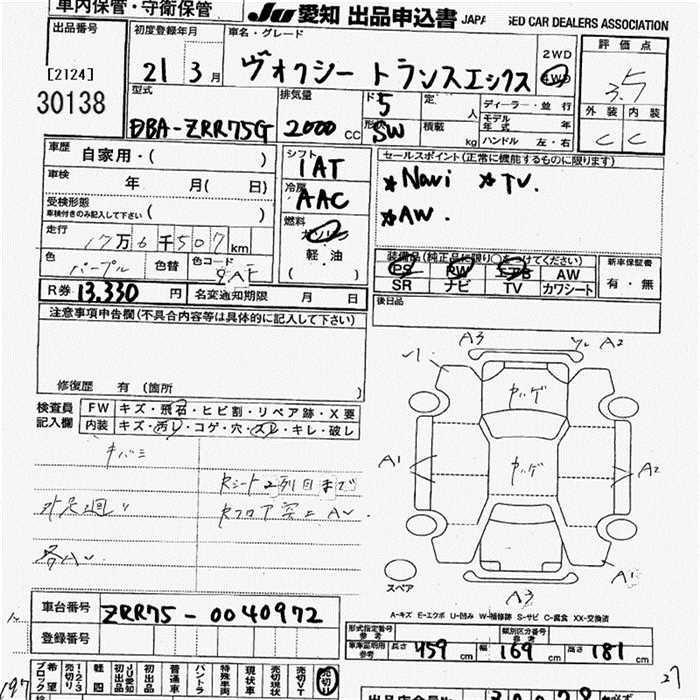 車内保管・守衛保管
JU 愛知 出品申込書 JAPA SED CAR DEALERS ASSOCIATION
出品番号
[2124]
30138
初度登録年月
21 3月
車名・グレード
ヴォクシー トランスエックス
2WD
4WD
評価点
3.5
外装 内装
C C
型式
DBA-ZRR75G
排気量
2000 CC
ド 5
形状 SW
定 人
積載 kg
ディーラー・並行
モデル年式 年
ハンドル 左・右
車歴
自家用・( )
車検
年 月( 日)
受検形態
車検付きのみ記入して下さい ( )
走行
17万6千507km
色
パープル
色替
色コード
9AF
シフト
IAT
冷房
AAC
燃料
ガソリン
軽・油
( )
セールスポイント(正常に機能するものに限ります)
*Navi *TV.
*AW.
装備品(純正品に限り○をつけてください)
PS PW エアB AW
SR ナビ TV カワシート
新車保証書
有・無
後日品
R券 13,330 円 名変通知期限 月 日
注意事項申告欄(不具合内容等は具体的に記入して下さい)
修復歴 有(箇所 )
検査員
記入欄
FW キズ・飛石・ヒビ割・リペア跡・X要
内装 キズ・汚レ・コゲ・穴・スレ・キレ・破レ
キバミ
Rシート2列目まで
Rフロア
A3
A2
A1
A2
A1
A3
スペア
A-キズ E-エクボ U-凹み W-補修跡 S-サビ C-腐食 XX-交換済
車台番号 ZRR75-0040972
登録番号
形式指定番号 参考
類別区分番号 参考
車庫証明用 参考 長さ 459 cm 幅 169 cm 高さ 181 cm
27
197
ブロック
希望
売切り
1・2・3
軽四
JU愛知初出品
初出品
普通車
バントラ
特殊車両
現状車
売切現状
売切VT
売切り
出品店会員